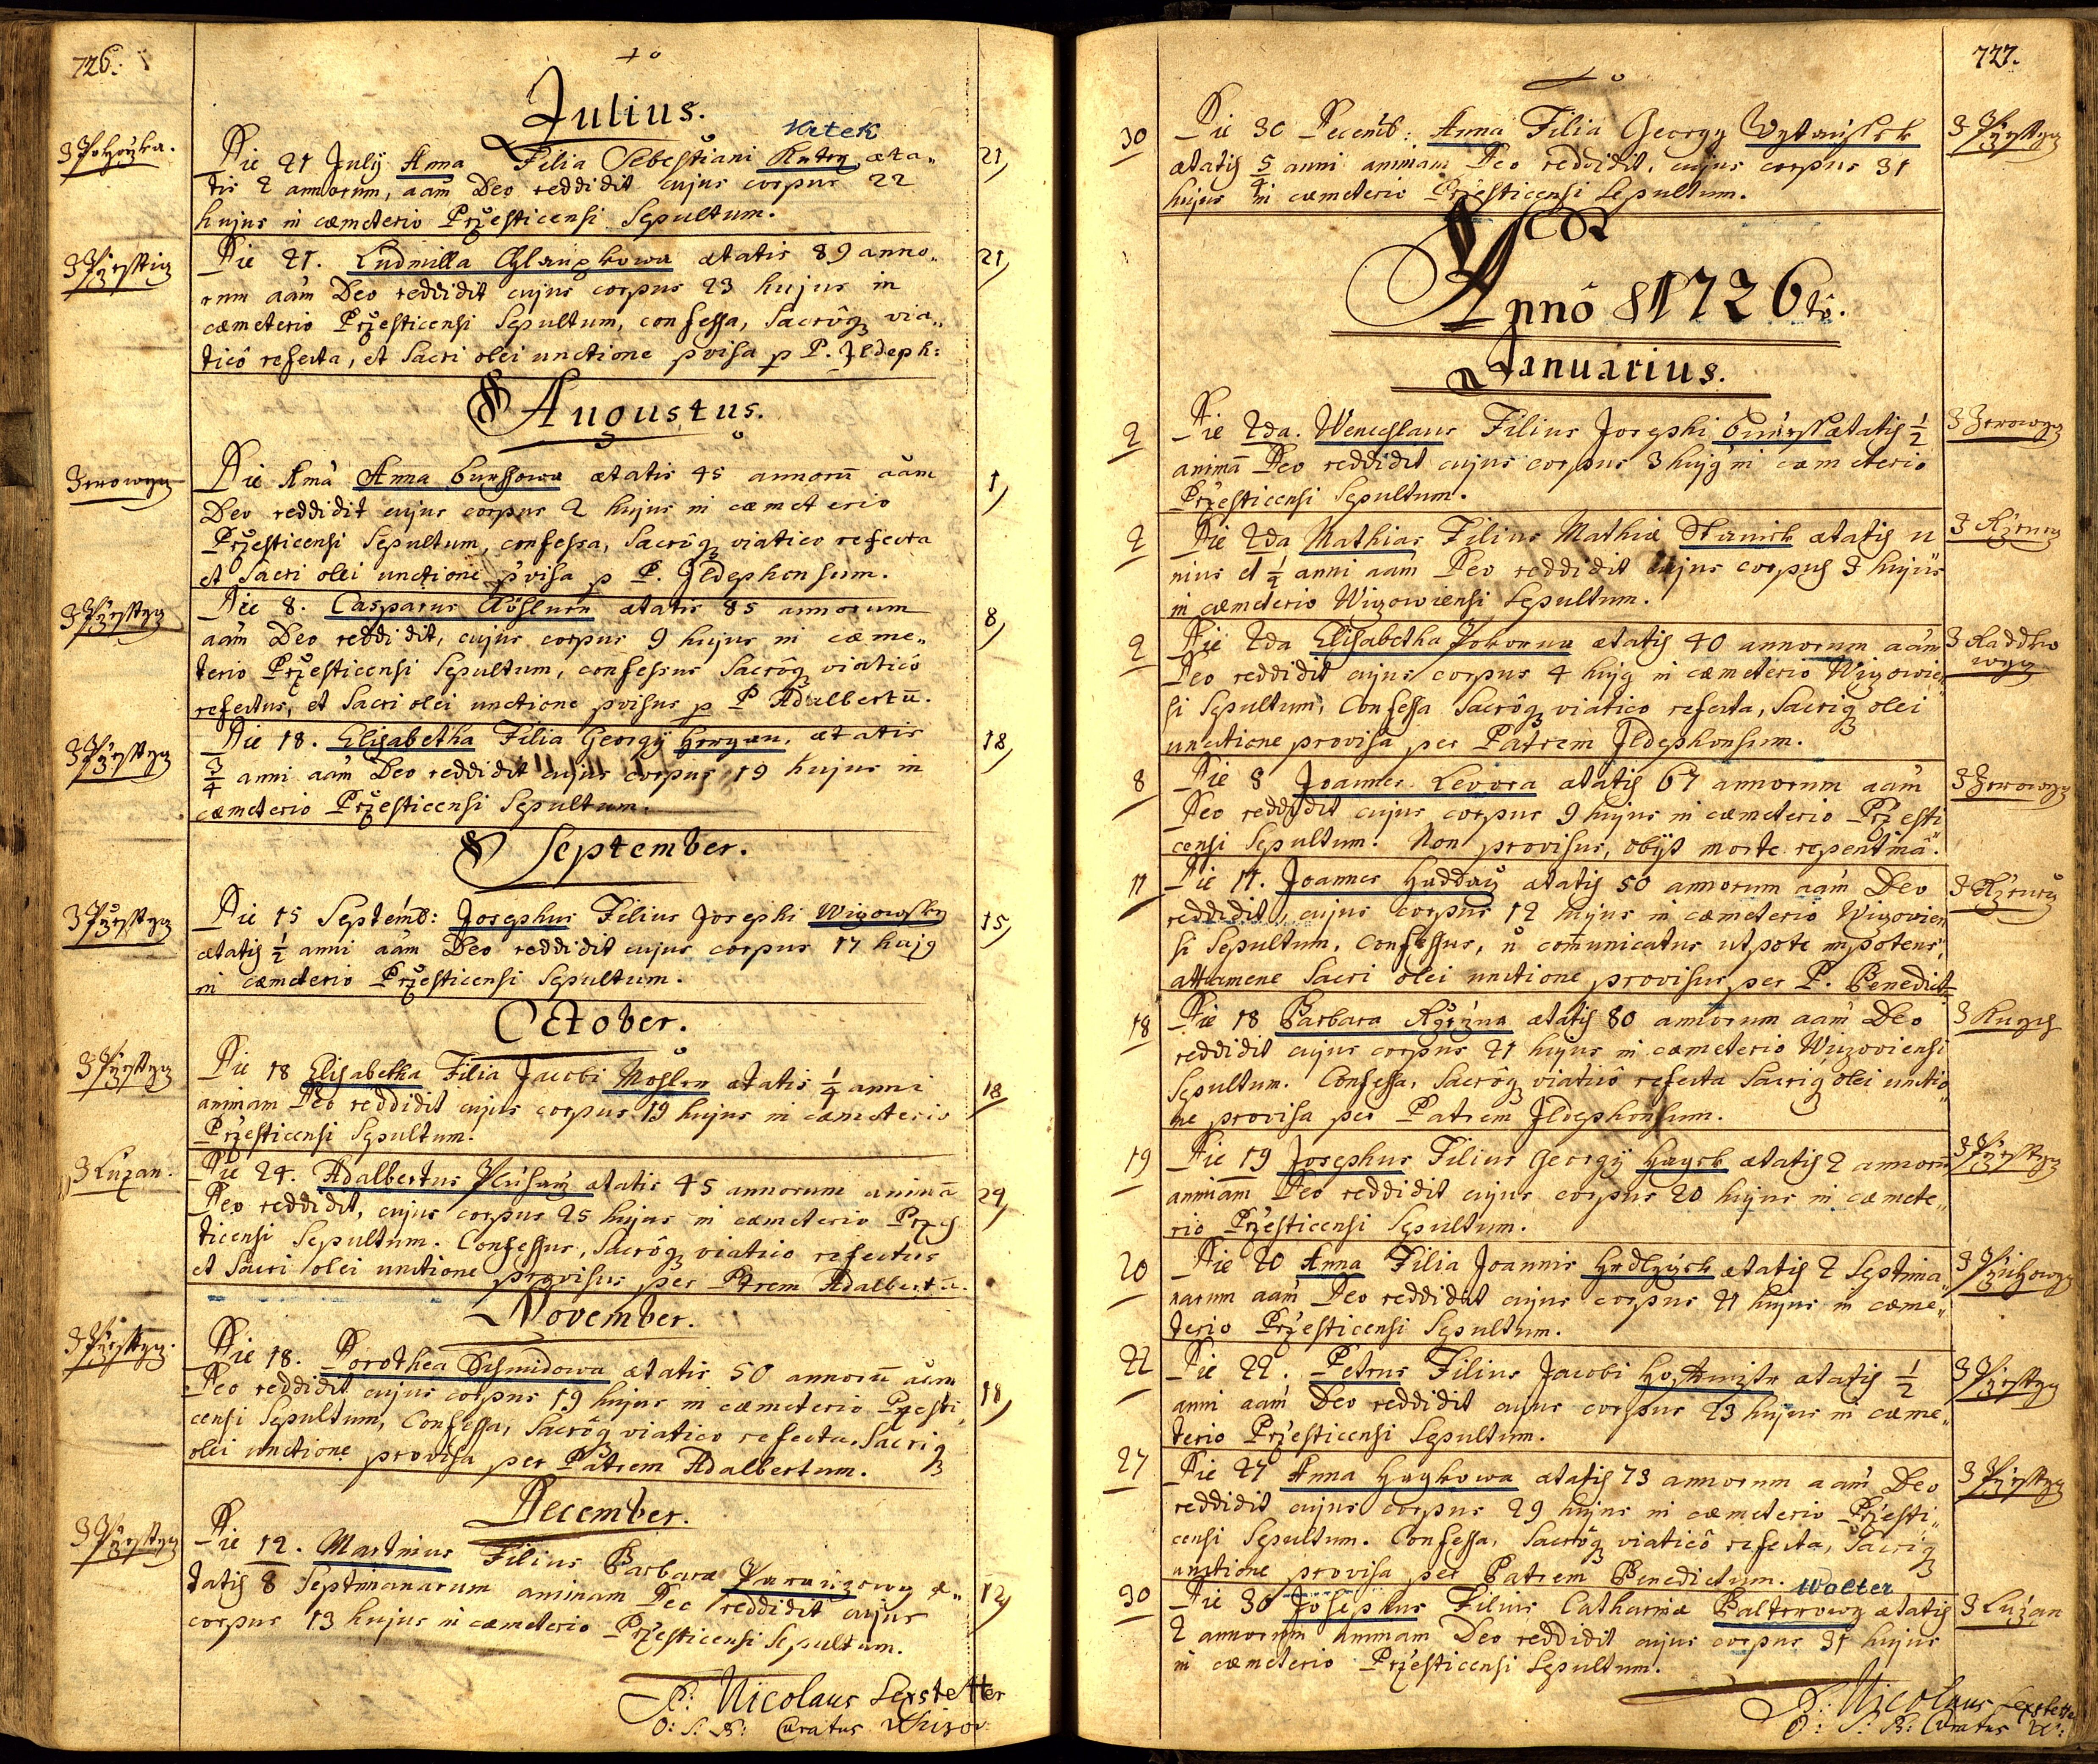 726.
Julius.
Die 21 July Anna Filia Sebestiani æta„
tis 2 annorum, aãm Deo reddidit cujus corpus 22
hujus in cæmeterio Przesticensi Sepultum.
21
Die 21. Ludmilla ætatis 89 anno„
rum aãm Deo reddidit cujus corpus 23 hujus in
cæmeterio Przesticensi Sepultum, confessa, Sacrôq, via„
ticô refecta, et Sacri olei unctione pvisa p P. Jldeph:
21
Augustus.
Die 1mâ Anna ætatis 45 annorũ aãm
Deo reddidit cujus corpus 2 hujus in cæmeterio
Przesticensi Sepultum, confessa, Sacrôq, viatico refecta
et Sacri olei unctione pvisa p P. Jldephonsum.
1
Die 8. Casparus ætatis 85 annorum
aãm Deo reddidit, cujus corpus 9 hujus in cæme„
terio Przesticensi Sepultum, confessus Sacrôq, viaticô
refectus, et Sacri olei unctione pvisus p P Adalbertũ.
8
Die 18. Elisabetha Filia Georgÿ ætatis
3/4 anni aãm Deo reddidit cujus corpus 19 hujus in
cæmeterio Przesticensi Sepultum.
18
September.
Die 15 Septemb: Josephus Filius Josephi Wizowsky
ætatis 1/2 anni aãm Deo reddidit cujus corpus 17 hujg
in cæmeterio Przesticensi Sepultum.
15
October.
Die 18 Elisabetha Filia Jacobi ætatis 1/4 anni
animam Deo reddidit cujus corpus 19 hujus in cæmeterio
Przesticensi Sepultum.
18
Z Luzan.
Die 24. Adalbertus ætatis 45 annorum animã
Deo reddidit, cujus corpus 25 hujus in cæmeterio Przes
ticensi Sepultum. Confessus, Sacrôq, viatico refectus
et Sacri olei unctione provisus per Ptrem Adalbertũ.
24
November.
Die 18. Dorothea Schmidowa ætatis 50 annorũ aãm
Deo reddidit cujus corpus 19 hujus in cæmeterio Przesti„
censi Sepultum, Confessa, Sacrôq viatico refecta, Sacriq
olei unctione provisa per Patrem Adalbertum.
18
December.
Die 12. Martinus Filius Barbaræ æ„
tatis 8 Septimanarum animam Deo reddidit cujus
corpus 13 hujus in cæmeterio Przesticensi Sepultum.
12
P: Nicolaus
O: S: B: Curatus
727.
30
Die 30 Decemb: Anna Filia Georgy
ætatis 5/4 anni animam Deo reddidit, cujus corpus 31
hujus in cæmeterio Przesticensi Sepultum.
Annô 1726tô.
Januarius.
2
Die 2da. Wenceslaus Filius Josephi ætatis 1/2
animã Deo reddidit cujus corpus 3 hujg in cæmeterio
Przesticensi Sepultum.
2
Die 2da Mathias Filius Mathiæ ætatis u
nius et 1/2 anni aãm Deo reddidit cujus corpus 3 hujus
in cæmeterio Wizowiensi Sepultum.
2
Die 2da Elisabetha Pokorna ætatis 40 annorum aãm
Deo reddidit cujus corpus 4 hujg in cæmeterio Wizowien„
si Sepultum, Confessa Sacrôq, viatico refecta, Sacriq olei
unctione provisa per Patrem Jldephonsum.
8
Die 8 Joannes Levora ætatis 67 annorum aãm
Deo reddidit cujus corpus 9 hujus in cæmeterio Przesti
censi Sepultum. Non provisus, obÿt morte repentinâ.
11
Die 11. Joannes ætatis 50 annorum aãm Deo
reddidit, cujus corpus 12 hujus in cæmeterio Wizovien
si Sepultum. Confessus, ñ comunicatus utpote impotens,
attamene Sacri olei unctione provisus per P. Benedict
18
Die 18 Barbara ætatis 80 annorum aãm Deo
reddidit cujus corpus 21 hujus in cæmeterio Wizoviensi
Sepultum. Confessa, Sacrôq viaticô refecta Sacriq olei unctio„
ne provisa per Patrem Jldephonsum.
19
Die 19 Josephus Filius Georgÿ ætatis 2 annorũ
animam Deo reddidit cujus corpus 20 hujus in cæmete„
rio Przesticensi Sepultum.
20
Die 20 Anna Filia Joannis ætatis 2 Septima„
narum aãm Deo reddidit cujus corpus 21 hujus in cæme„
terio Przesticensi Sepultum.
22
Die 22. Petrus Filius Jacobi ætatis 1/2
anni aãm Deo reddidit cujus corpus 23 hujus in cæme„
terio Przesticensi Sepultum.
27
Die 27 Anna ætatis 73 annorum aãm Deo
reddidit cujus corpus 29 hujus in cæmeterio Przesti„
censi Sepultum. Confessa, Sacrôq viaticô refecta, Sacriq
unctione provisa per Patrem Benedictum.
Walter
30
Die 30 Josephus Filius Catharinæ ætatis
2 annorum animam Deo reddidit cujus corpus 31 hujus
in cæmeterio Przesticensi Sepultum.
Z Luzan
P: Nicolaus
O: S: B: Curatus